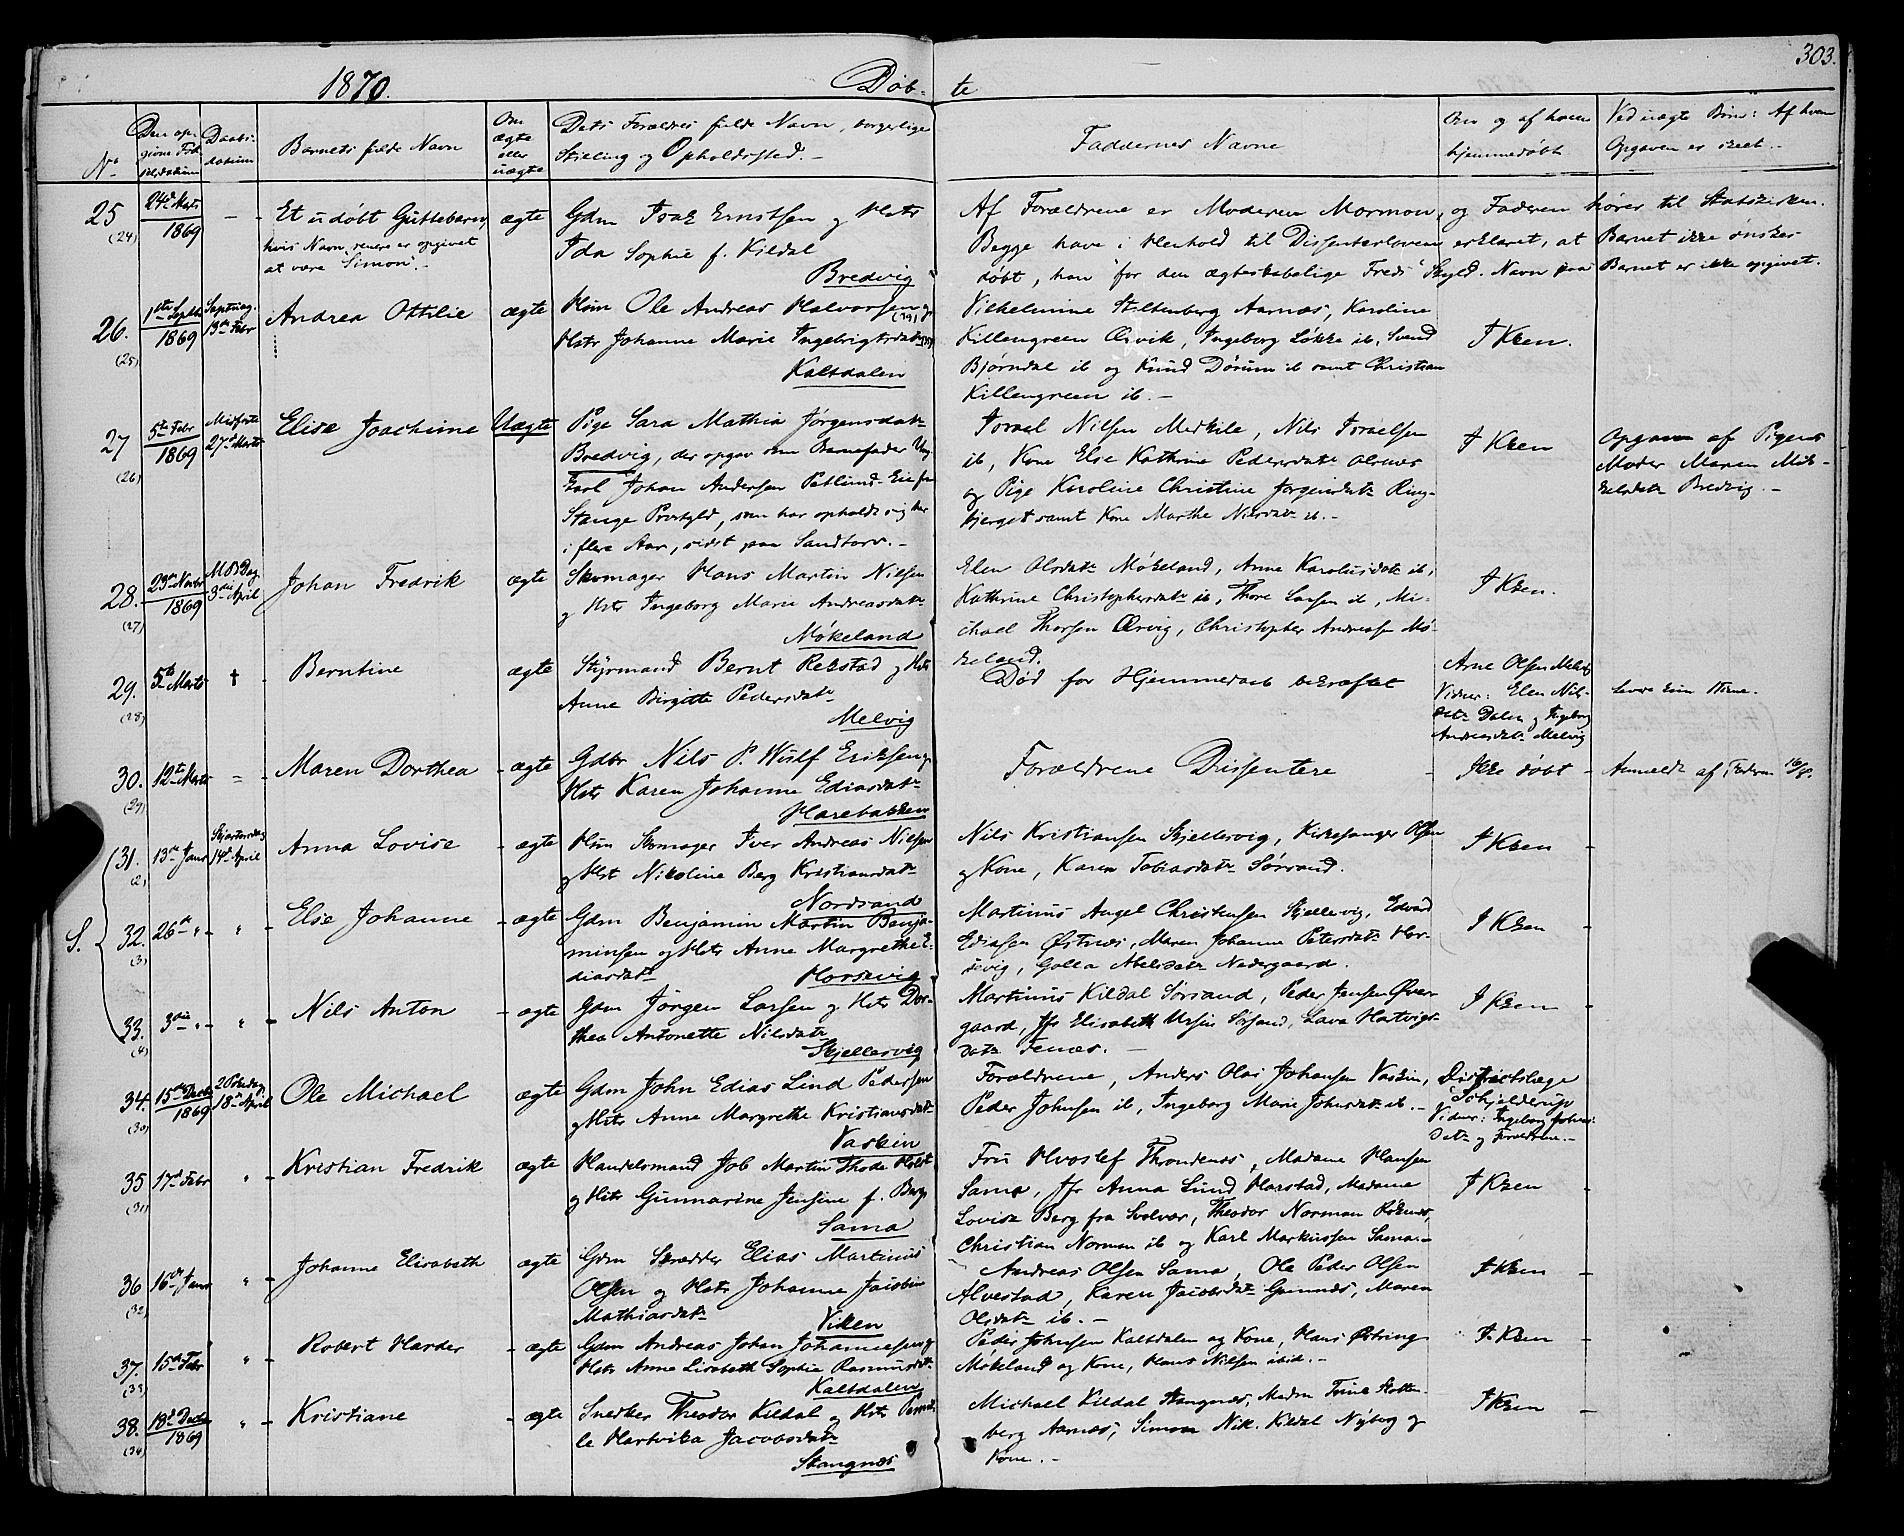 303.
1870.
Døb- te
No
Den op-
givne Fød-
selsdatum
Daabs-
datum
Barnets fulde Navn
Om
ægte
eller
uægte
Dets Forældres fulde Navn, borgerlige
Stilling og Opholdssted.-
Faddernes Navne
Om og af hvem
hjemmedøbt
Ved uægte Børn: Af hvem
Opgaven er skeet.-
25
(24)
24de Marts
1869
Et udøbt Guttebarn,
hvis Navn senere er opgivet
at være "Simon".-
ægte
Gdm Isak Ernstsen og Hstr
Ida Sophie f. Kildal
Bredvig
Af Forældrene er Moderen Mormon, og Faderen hører til Statskirken.
Begge have i Henhold til Dissenterloven erklæret, at Barnet ikke ønskes
døbt, han "for den ægteskabelige Freds" Skyld. Navn paa Barnet er ikke opgivet.
26.
(25)
1ste Septbr
1869
Septuag.
13de Febr
Andrea Ottilie
ægte
Hsm Ole Andreas Halvorsen
Hstr Johanne Marie Ingebrigtsdatr
Kaltdalen
Vilhelmine Stiltenberg Aarnæs, Karoline
Killengreen Ervik, Ingeborg Løkke ib, Svend
Bjørndal ib og Knud Dørum ib samt Christian
Killengreen ib.-
I Kken.
27
(26)
5te Febr
1869
Midfaste
27de Marts
Elise Joachime
Uægte
Pige Sara Mathia Jørgensdatr
Bredvig, der opgav som Barnefader Ung-
karl Johan Andersen Petlund-Eie fra
Stange Prestgjeld, som har opholdt sig her
i flere Aar, sidst paa Sandtorv.-
Israel Nilsen Medkile, Nils Israelsen
ib, Kone Else Kathrine Pedersdatr Olsnæs
og Pige Karoline Christine Jørgensdatr Ring-
bjerget samt Kone Marthe Nilsdatr ib.-
I Kken
Opgaven af Pigens
Moder Maren Mik-
kelsdatr Bredvig.-
28.
(27)
23de Novbr
1869
M B Dag
3die April
Johan Fredrik
ægte
Skomager Hans Martin Nilsen
og Hstr Ingeborg Marie Andreasdatr
Møkeland
Elen Olsdatr Møkeland, Anne Karolusdatr ib,
Kathrine Christophersdatr ib, Thore Larsen ib, Mi-
chael Thorsen Ervig, Christopher Andreasen Mø-
keland.
I Kken.
29.
(28)
5te Marts
†
Berntine
ægte
Styrmand Bernt Rekstad og Hstr
Anne Birgitte Pedersdatr
Melvig
Død før Hjemmedaab bekræftet
Arne Olsen Melvig
Vidner: Elen Nils-
datr Dalen og Ingeborg
Andreasdatr Melvig
30.
(29)
12te Marts
Maren Dorthea
ægte
Gdbr Nils P. Wulf Eriksen og
Hstr Karen Johanne Ediasdatr
Harebakken
Forældrene Dissentere
Ikke døbt
Anmeldt af Faderen
S.
31.
(2)
13de Janr
Skjærtorsdag
14de April
Anna Lovise
ægte
Hsm Skomager Iver Andreas Nilsen
og Hst Nikoline Berg Kristiansdatr
Nordsand
Nils Kristiansen Skjellesvig, Kirkesanger Olsen
og Kone, Karen Tobiasdatr Sørsand.
I Kken
32.
(3)
26de "
"
Else Johanne
ægte
Gdm Benjamin Martin Benja-
minsen og Hstr Anne Margrethe E-
diasdatr
Horsevig
Martinus Angel Christensen Skjellesvig, Edvard
Ediasen Østnæs, Maren Johanne Petersdatr Hor-
sevig, Golla Abelsdatr Nedergaard.
I Kken
33.
(4)
3die "
"
Nils Anton
ægte
Gdm Jørgen Larsen og Hstr Dor-
thea Antonette Nilsdatr
Skjellesvig
Martinus Kildal Sørsand, Peder Jensen Øver-
gaard, Jfr Elisabeth Ursin Sørsand, Lava Hartvigs-
datr Fenæs.-
I Kken
34.
(30)
15de Decbr
1869
2 Paaskedag
18de April
Ole Michael
ægte
Gdm John Edias Lind Pedersen
og Hstr Anne Margrethe Kristiansdatr
Vaskin
Forældrene, Anders Olai Johansen Vaskin,
Peder Johnsen ib, Ingeborg Marie Johnsdatr ib.-
Distriktslæge
Schjelderup
Vidner: Ingeborg Johns-
datr og Forældrene.-
35
(31)
17de Febr
"
Kristian Fredrik
ægte
Handelsmand Job Martin Thode Holst
og Hstr Gunnarine Jensine f. Berg
Sama
Fru Hvoslef Throndenæs, Madame Hansen
Sama, Jfr Anna Lund Harstad, Madame
Lovise Berg fra Svolvær, Theodor Norman Røkenæs,
Christian Norman ib og Karl Markussen Sama.-
I Kken
36
(32)
16de Janr
"
Johanne Elisabeth
ægte
Gdm Skrædder Elias Martinus
Olsen og Hstr Johanne Jacobine
Mathiasdatr
Viken
Andreas Olsen Sama, Ole Peder Olsen
Alvestad, Karen Jacobsdatr Gunnæs, Maren
Olsdatr ib.-
I Kken
37.
(33)
15de Febr
"
Robert Harder
ægte
Gdm Andreas Johan Johannesen og
Hstr Anne Lisabeth Sophie Rasmusdatr
Kaltdalen
Peder Johnsen Kaltdalen og Kone, Hans Østring
Møkeland og Kone, Hans Nilsen ibid.-
I Kken
38.
(34)
18de Decbr
1869
"
Kristiane
ægte
Snedker Theodor Kildal og Hstr Pernil-
le Hartvika Jacobsdatr
Stangnæs
Michael Kildal Stangnæs, Madm Trine Stolten-
berg Aarnæs, Simon Nik. Kildal Nyborg og
Kone.-
I Kken